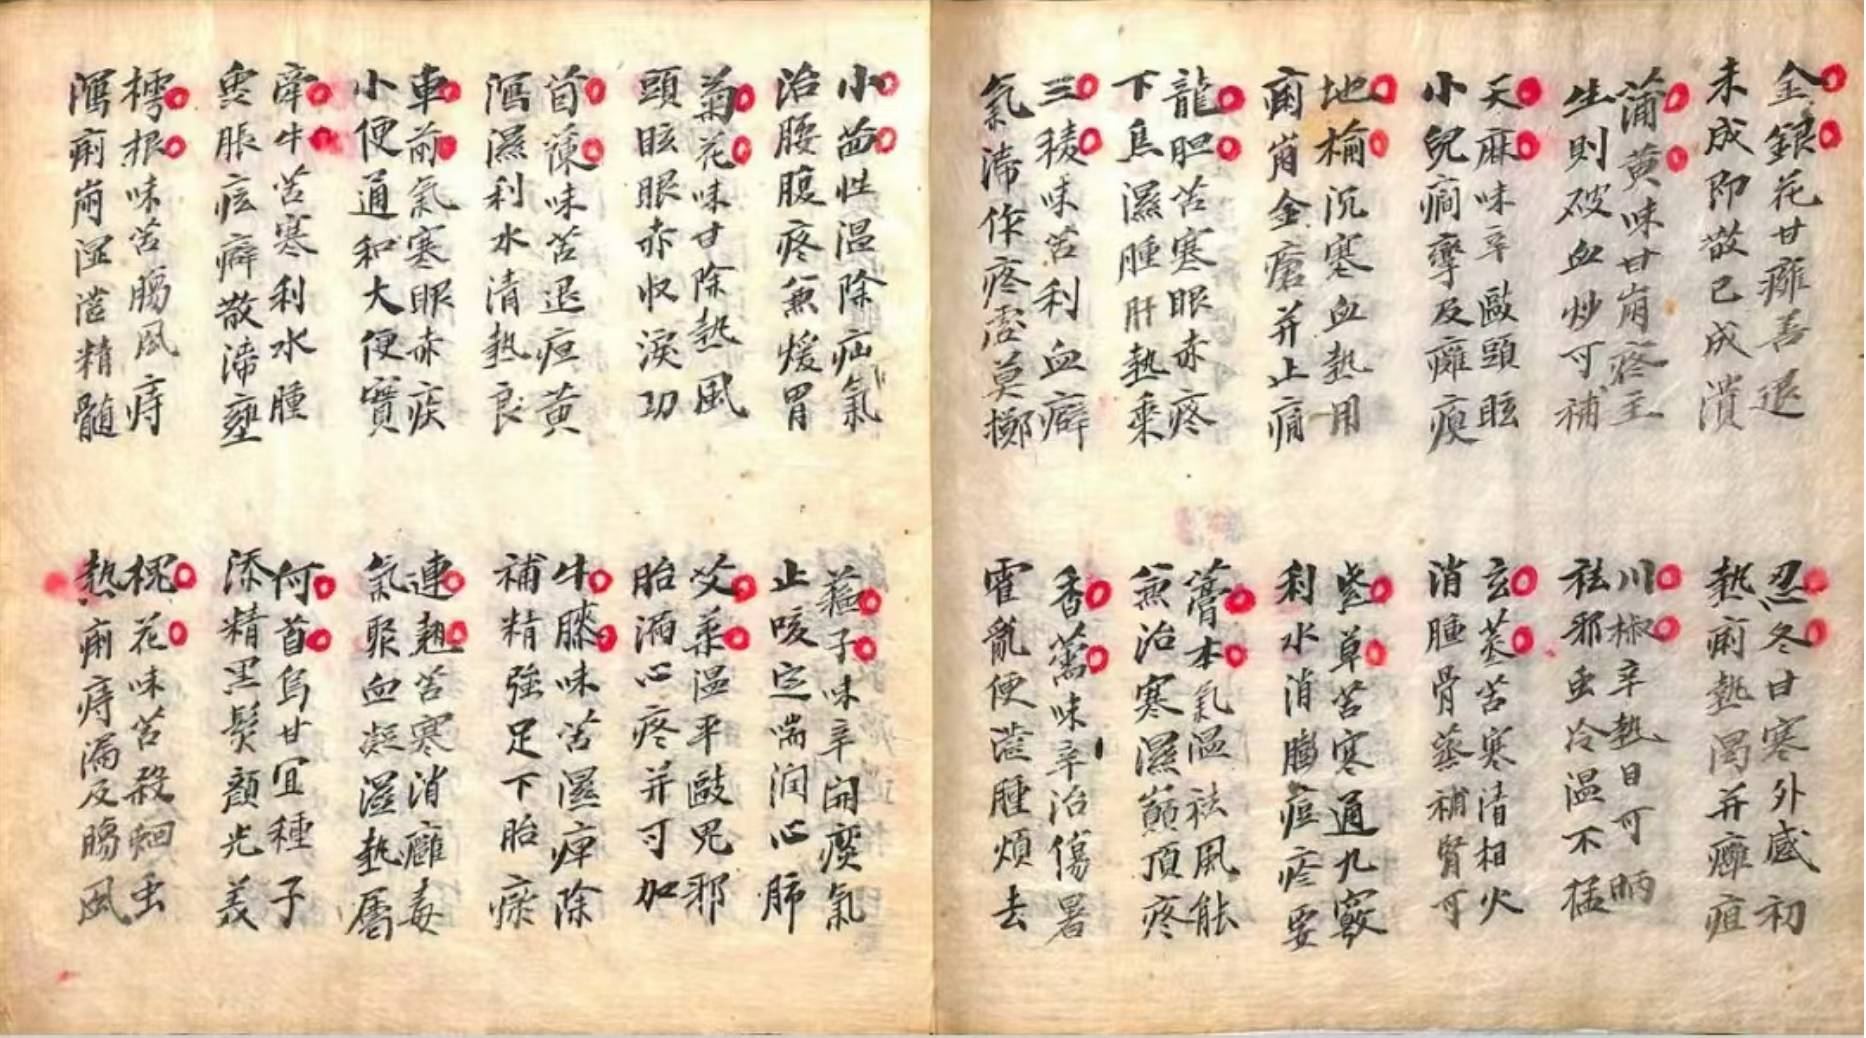 金銀花甘癰善退
未成即散已成潰
蒲黄味甘崩疼主
生則破血炒可補
天麻味辛歐頭眩
小兒癎攣及癱瘓
地榆沉寒血熱用
痢崩金瘡并止痛
龍胆苦寒眼赤疼
下焦濕腫肝熱乘
三稜味苦利血癖
氣滯作疼虛莫擲
忍冬甘寒外感初
熱痢熱渴并癰疽
川椒辛熱目可昞
祛邪虫冷温不猛
玄參苦寒清相火
消腫骨蒸補腎可
紫草苦寒通九竅
利水消膨痘疹要
藁本氣温祛風能
兼治寒濕巔頂疼
香薷味辛治傷暑
霍亂便澁腫煩去
小茴性温除疝氣
治腰腹疼兼煖胃
菊花味甘除熱風
頭眩眼赤收淚功
茵蔯味苦退疸黄
瀉濕利水清熱良
車前氣寒眼赤疾
小便通和大便實
牽牛苦寒利水腫
蠱脹痃癖散滯壅
樗根味苦腸風痔
瀉痢崩濕澁精髓
蘇子味辛開痰氣
止咳定喘润心肺
艾葉温平歐鬼邪
胎漏心疼并可加
牛膝味苦濕痺除
補精強足下胎瘀
連翹苦寒消癰毒
氣聚血凝濕熱屬
何首烏甘宜種子
添精黒髮顔光美
槐花味苦殺蛔虫
熱痢痔漏及腸風